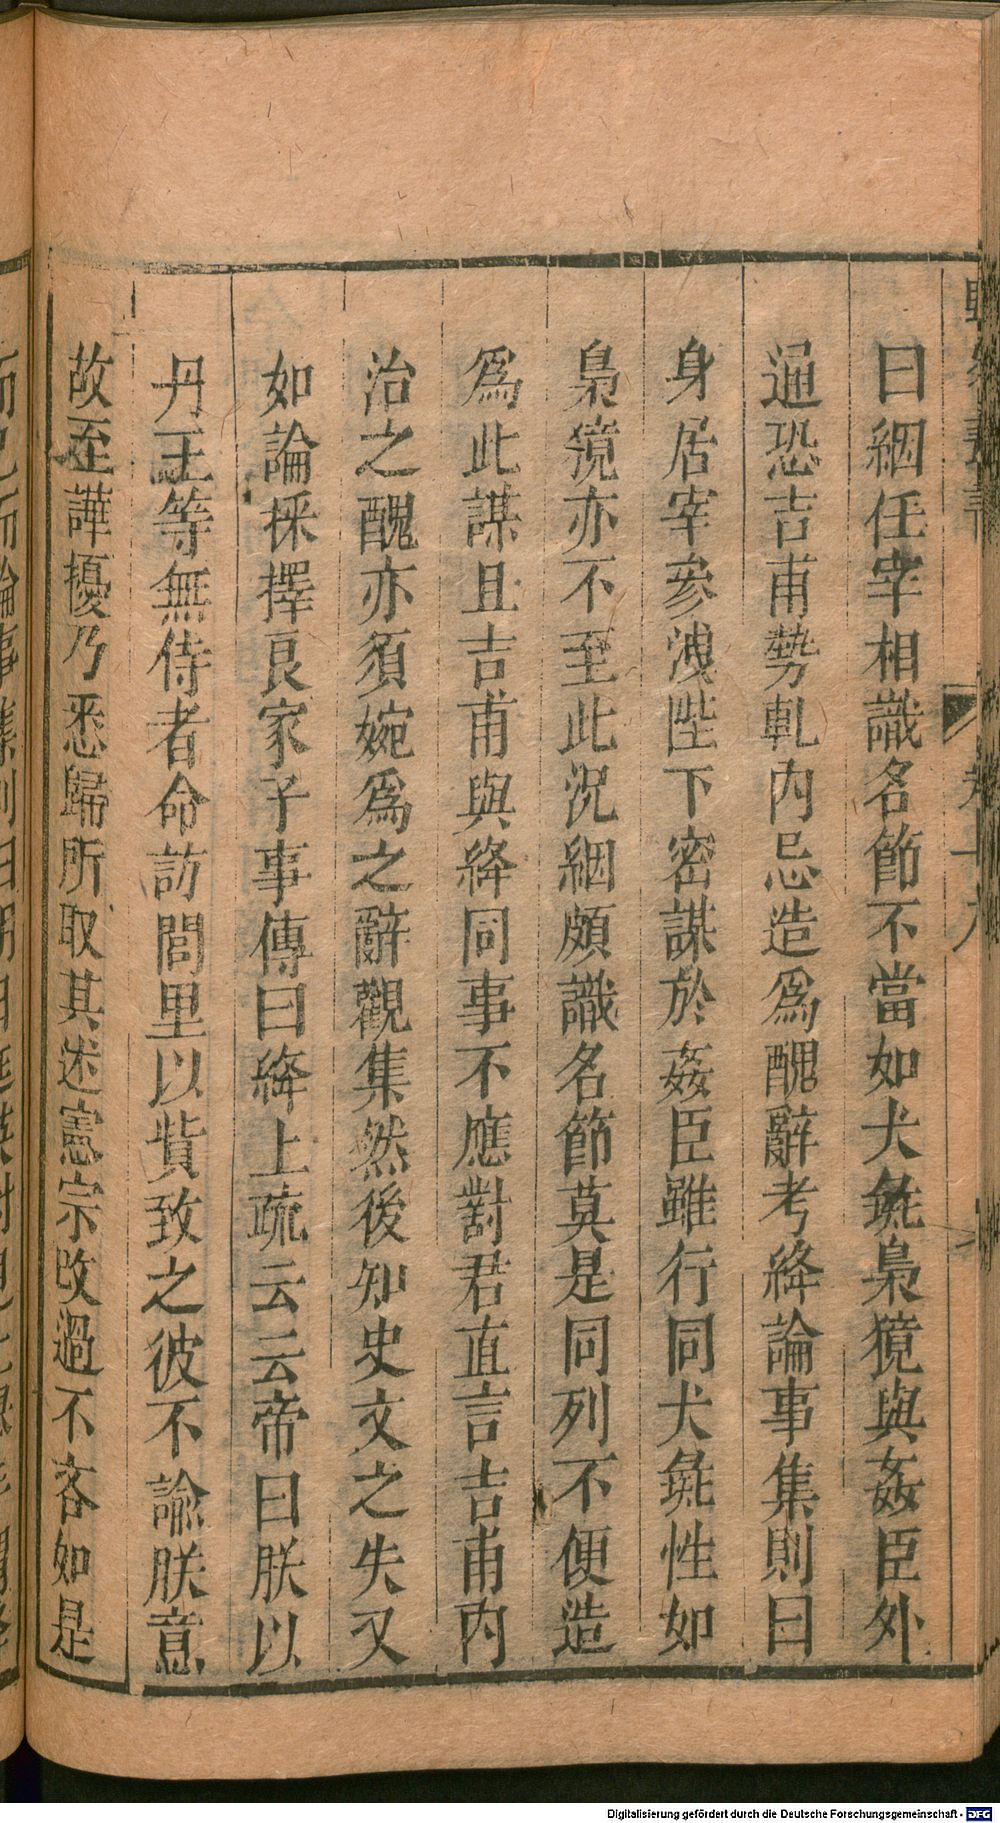 曰絪任宰相識名節不當如犬彘梟獍與姦臣外
通恐吉甫勢軋內忌造爲醜辭考絳論事集則曰
身居宰參洩陛下密謀於姦臣雖行同犬彘性如
梟獍亦不至此況絪頗識名節莫是同列不便造
爲此謀且吉甫與絳同事不應對君直言吉甫內
治之醜亦須婉爲之辭觀集然後知史文之失又
如論採擇良家子事傳曰絳上疏云云帝曰朕以
丹王等無侍者命訪閭里以貲致之彼不諭朕意
故至譁擾乃悉歸所取其述憲宗改過不吝如是
Digitalisierung gefördert durch die Deutsche Forschungsgemeinschaft - DFG